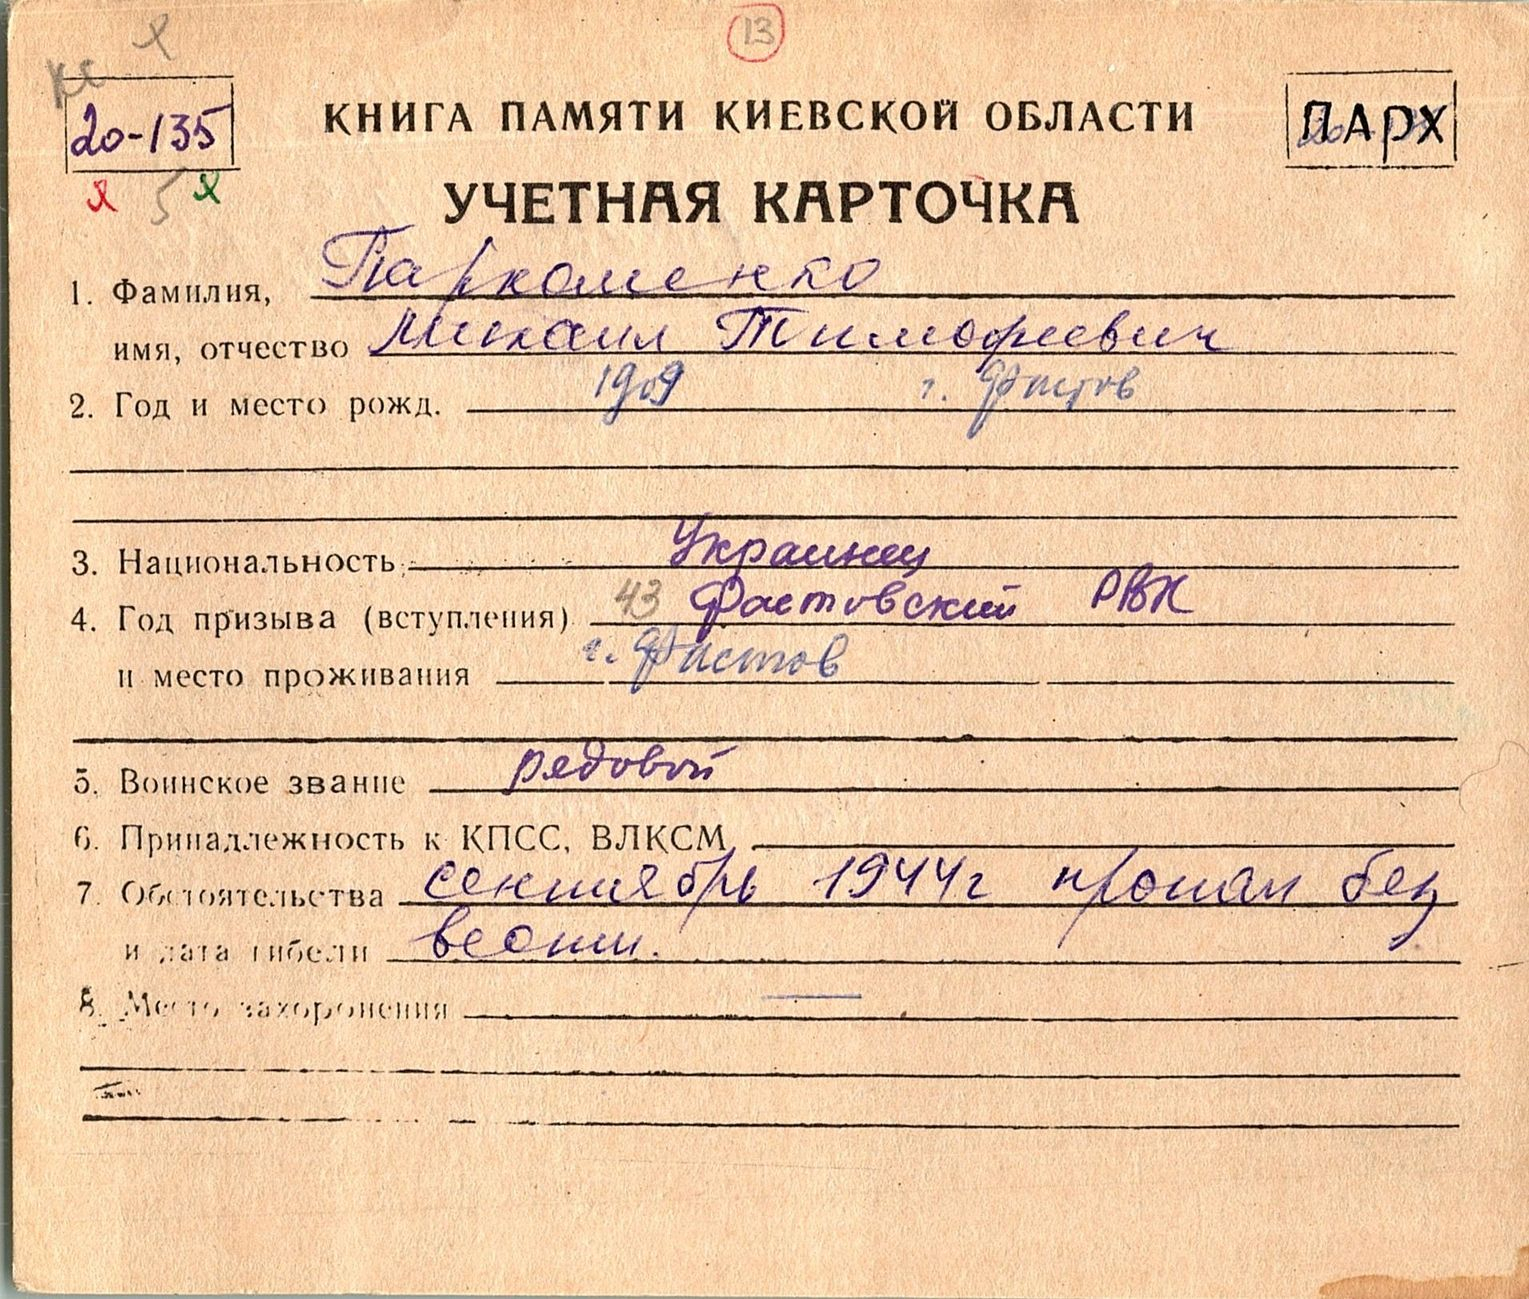 13
20-135
КНИГА ПАМЯТИ КИЕВСКОЙ ОБЛАСТИ
ПАРХ
5
УЧЕТНАЯ КАРТОЧКА
1. Фамилия, Пархоменко
имя, отчество Михаил Тимофеевич
2. Год и место рожд. 1909 г. Фастов
3. Национальность Украинец
4. Год призыва (вступления) 43 Фастовский РВК
и место проживания г. Фастов
5. Воинское звание рядовой
6. Принадлежность к КПСС, ВЛКСМ
7. Обстоятельства сентябрь 1944г пропал без
и дата гибели вести.
8. Место захоронения —